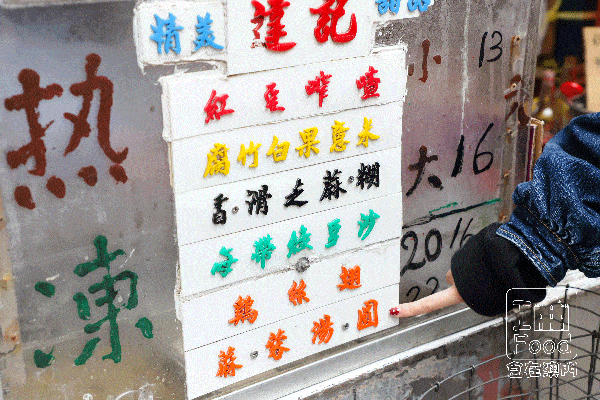 精美 達記 甜品
紅豆咋喳
腐竹白果意米
香滑之蔴糊
海帶綠豆沙
鷄絲翅
蔴蓉湯圓
熱
凍
小 13
大 16
20 16
22
IM
Food
食在澳門